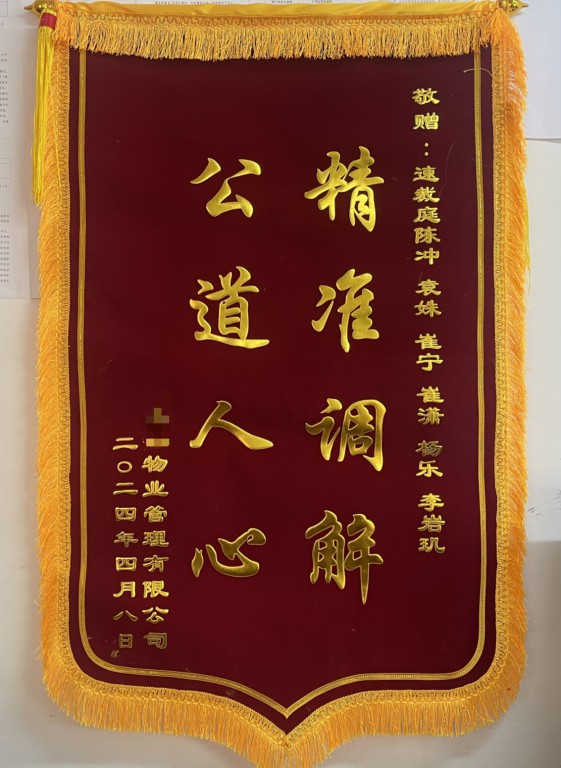 敬赠：速裁庭陈冲 袁姝 崔宁 崔潇 杨乐 李岩玑
精准调解
公道人心
物业管理有限公司
二〇二四年四月八日